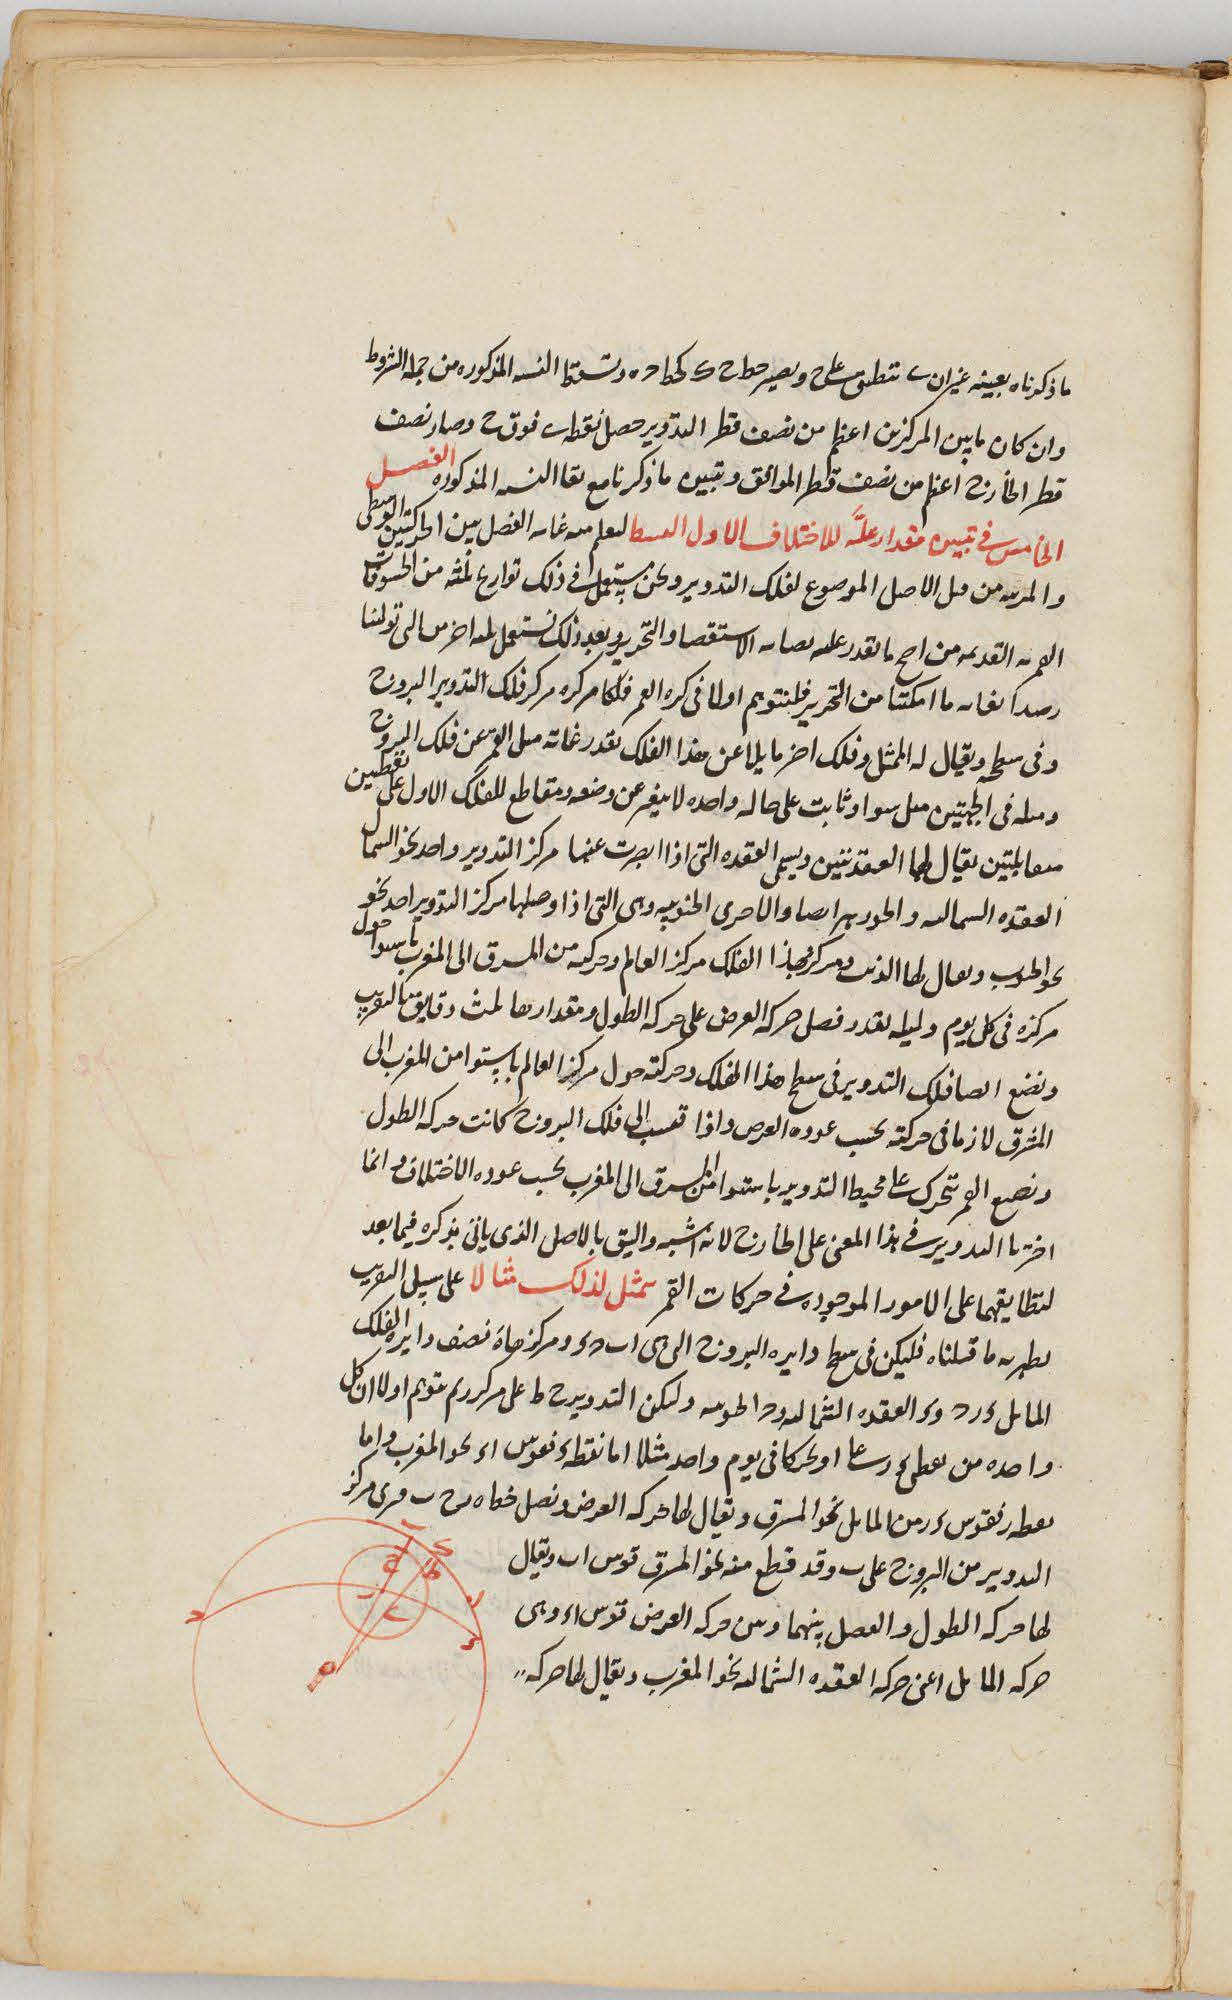 ما ذكرناه بعينه غير ان ب تنطبق على ح ويصير خط ح ك كخط ح ه وتسقط النسبه المذكوره من جمله الشروط
وان كان ما بين المركزين اعظم من نصف قطر التدوير حصل نقطه ب فوق ح وصار نصف
قطر الخارج اعظم من نصف قطر الموافق وتبين ما ذكرنا مع بقا النسبه المذكوره الفصل
الخامس في تبيين مقدار علة للاختلاف الاول البسيط ليعلم منه غايه الفصل بين الحركتين الوسطى
والمرئيه من قبل الاصل الموضوع لفلك التدوير ونحن نستعمل في ذلك تواريخ ثلثه من الخسوفات
القمريه القديمه من اصح ما نقدر عليه بغايه الاستقصا والتحرير وبعد ذلك نستعمل ثلثه اخر من التي تولينا
رصدا بغايه ما امكننا من التحرير فلنتوهم اولا في كره القمر فلكا مركزه مركز فلك البروج
وفي سطحه ويقال له الممثل وفلك اخر مايلا عن هذا الفلك بقدر غايه ميل القمر عن فلك البروج
وميله في الجهتين ميل سوا وثابت على حاله واحده لا يتغير عن وضعه ومقاطع للفلك الاول على نقطتين
متقابلتين يقال لها العقدتين ويسمى العقده التي اذا مرت عنها مركز التدوير واخذ نحو الشمال
العقده الشماليه والجوزهر ايضا والاخرى الجنوبيه وهي التي اذا وصلها مركز التدوير اخذ نحو
نحو الجنوب ويقال لها الذنب ومركز هذا الفلك مركز العالم وحركته من المشرق الى المغرب باستوا حول
مركزه في كل يوم وليله بقدر فضل حركه العرض على حركه الطول ومقدارها ثلث دقايق بالتقريب
ونضع ايضا فلك التدوير في سطح هذا الفلك وحركته حول مركز العالم باستوا من المغرب الى
المشرق لازما في حركته بحسب عوده العرض واذا نسب الى فلك البروج كانت حركه الطول
ونضع القمر متحرك على محيط التدوير باستوا من المشرق الى المغرب بحسب عوده الاختلاف وانما
اخترنا التدوير في هذا المعنى على الخارج لانه اشبه واليق بالاصل الذي ياتي ذكره فيما بعد
لتطابقهما على الامور الموجوده في حركات القمر نمثل لذلك مثالا على سبيل التقريب
بطريه ما قلناه فليكن في سطح دايره البروج التي هي ا ب ج د ومركزها ه نصف دايره الفلك
المايل د ر ج و د العقده الشماليه و ج الجنوبيه وليكن التدوير ح ط على مركز ر ثم نتوهم اولا ان كل
واحده من نقطتي د ر على ا وتحركا في يوم واحد مثلا اما نقطه د فقوس ا د نحو المغرب واما
نقطه ر فقوس د ر من المايل نحو المشرق ويقال لها حركه العرض ونصل خط ه ر ح ب فيرى مركز
التدوير من البروج على ب وقد قطع منه نحو المشرق قوس ا ب ويقال
لها حركه الطول والفصل بينهما وبين حركه العرض قوس ا د وهي
حركه المايل اعني حركه العقده الشماليه نحو المغرب ويقال لها حركه